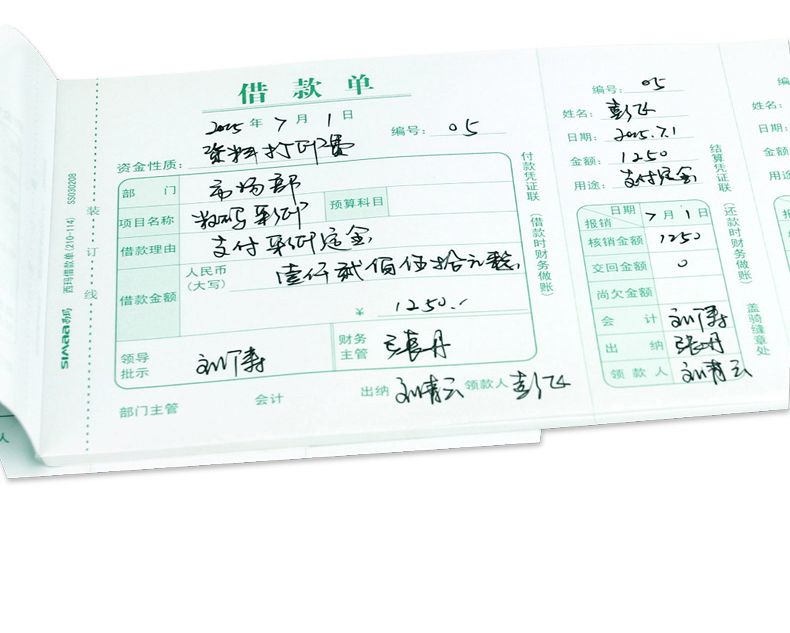 借款单
2025年7月1日 编号: 05
资金性质: 资料打印费
部门 市场部
项目名称 数码彩印 预算科目
借款理由 支付彩印定金
借款金额 人民币(大写) 壹仟贰佰伍拾元整
¥ 1250.-
领导批示 刘涛 财务主管 张丹
部门主管 会计 出纳 刘青云 领款人 彭飞
付款凭证联(借款时财务做账)
装订线
西玛借款单(210-114) SS030208
SIMAA西玛
编号: 05
姓名: 彭飞
日期: 2025.7.1
金额: 1250
用途: 支付定金
日期 报销 7月1日
核销金额 1250
交回金额 0
尚欠金额
会计 刘涛
出纳 张丹
领款人 刘青云
结算凭证联(还款时财务做账)
盖骑缝章处
编
姓名:
日期:
金额
用途:
报
人